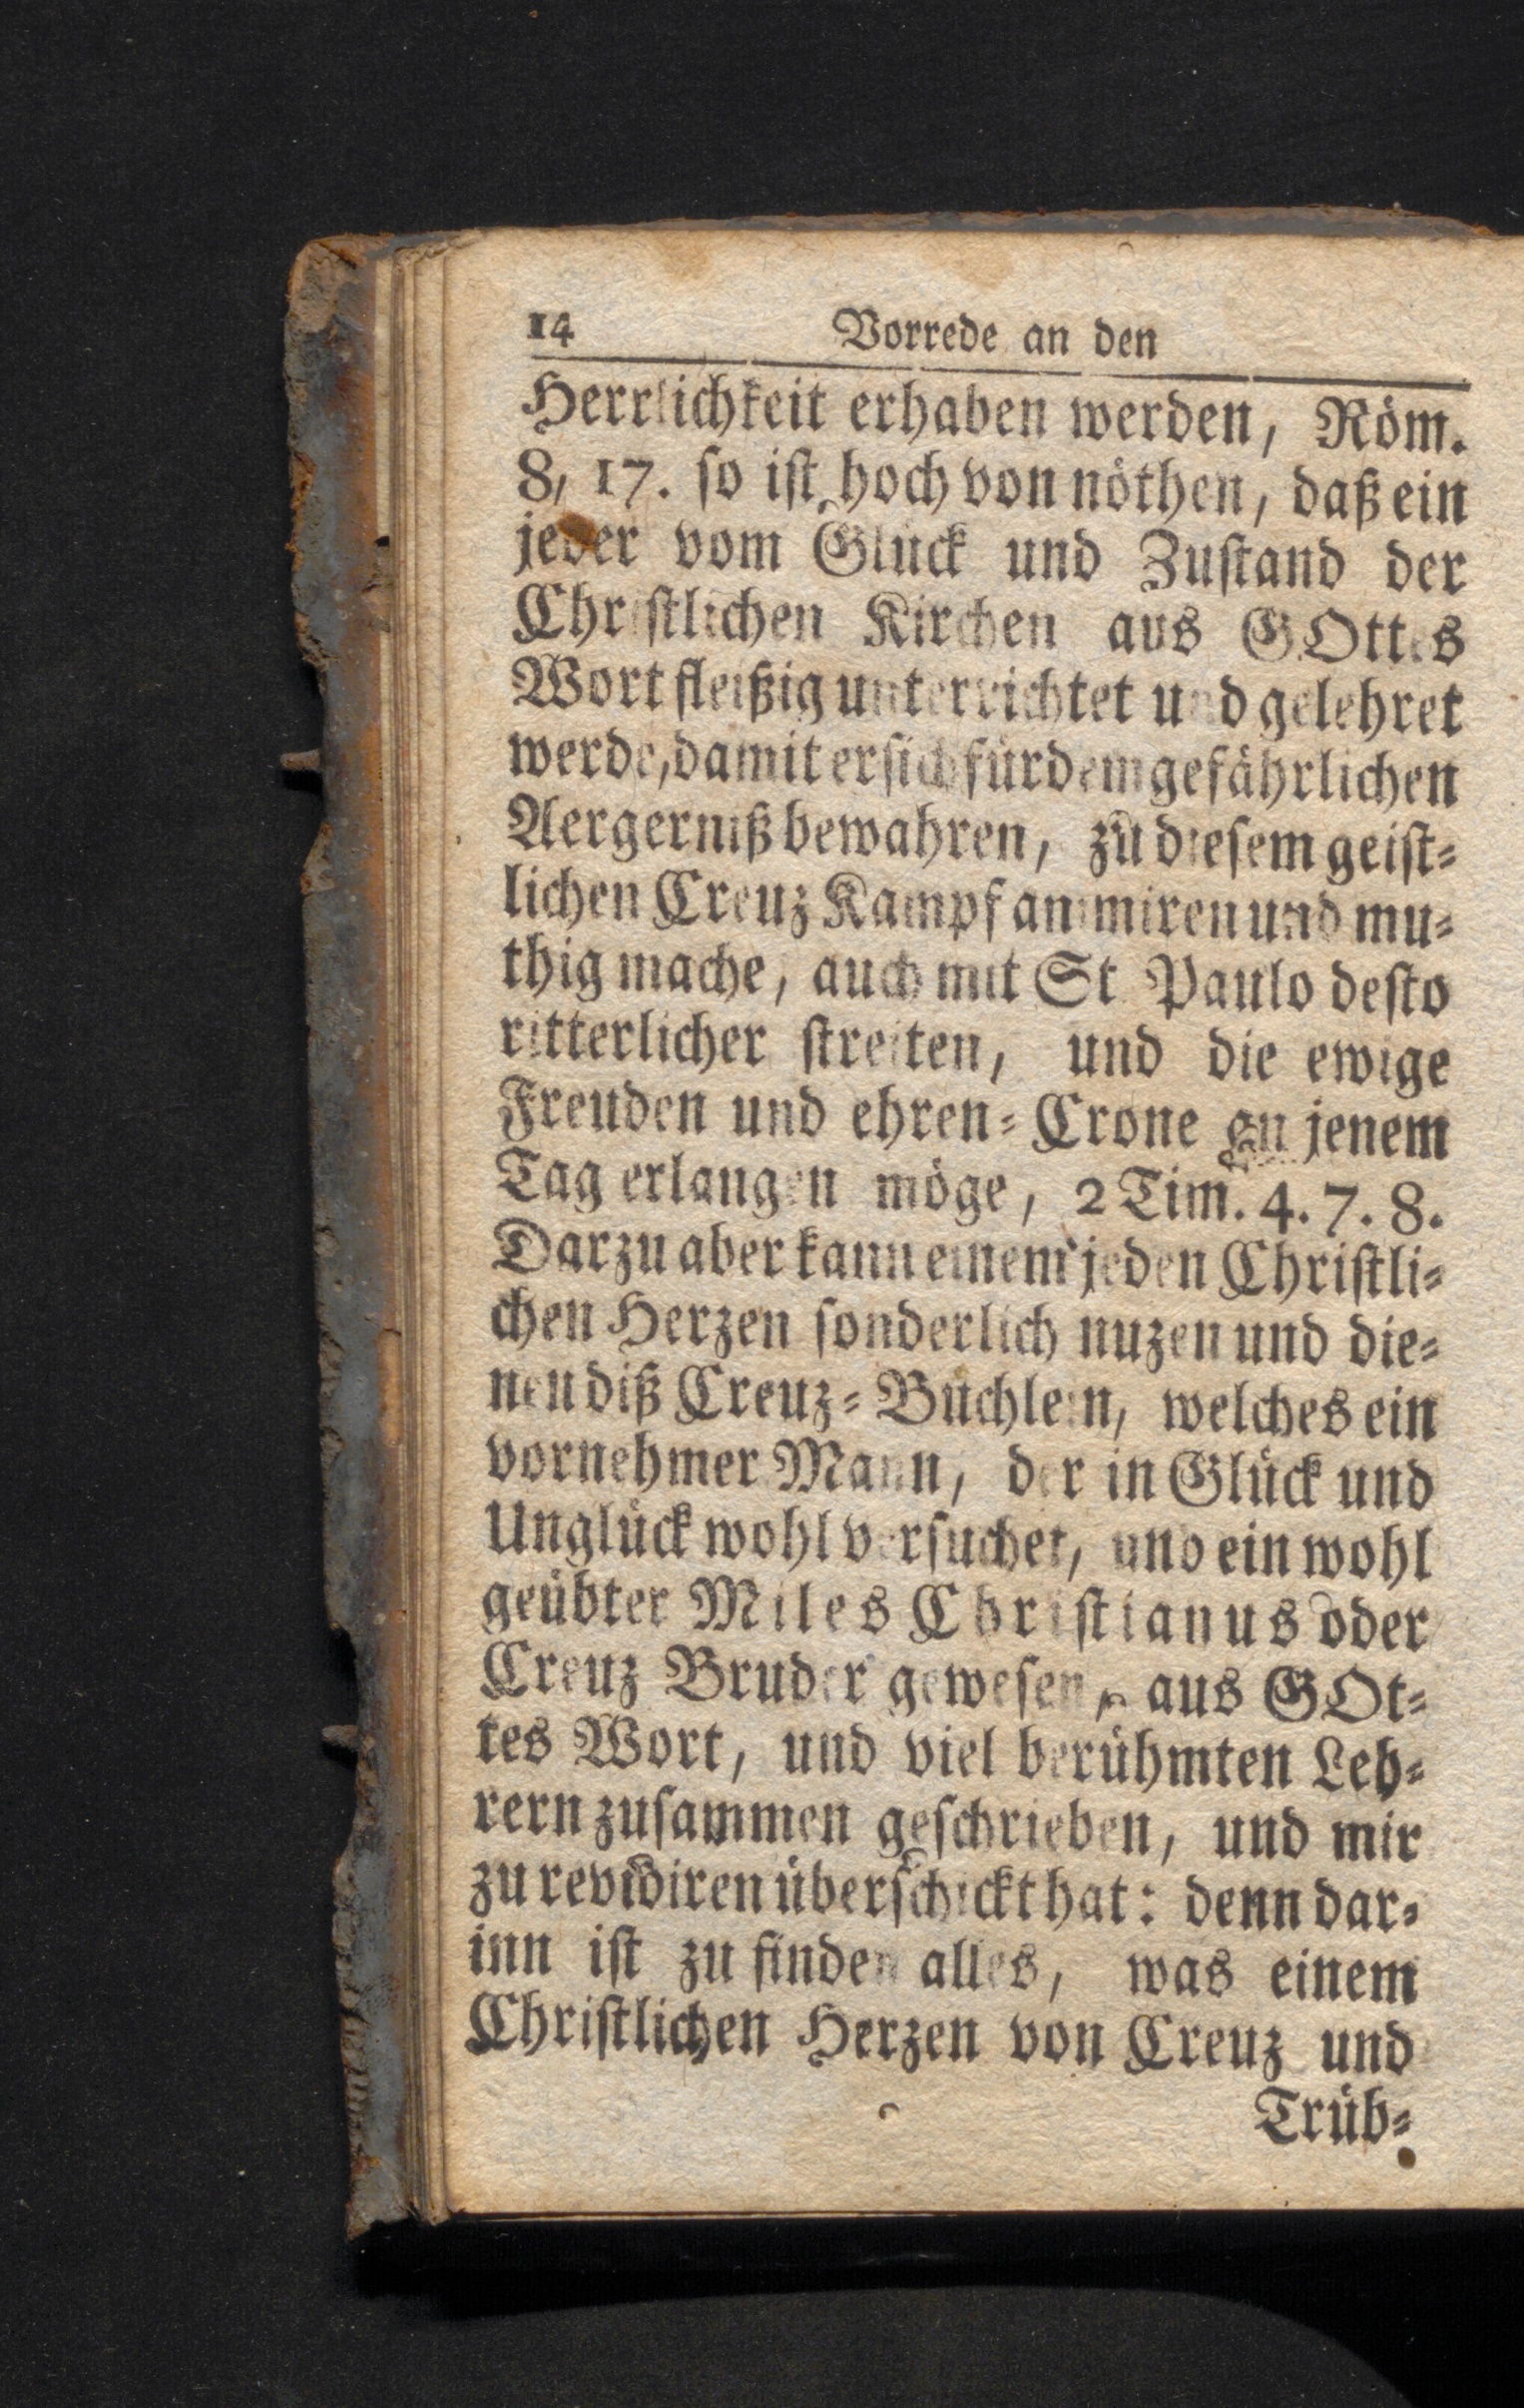 14 Vorrede an den
Herrlichkeit erhaben werden, Röm.
8, 17. so ist hoch von nöthen, daß ein
jeder vom Glück und Zustand der
Christlichen Kirchen aus GOttes
Wort fleißig unterrichtet und gelehret
werde, damit er sich für dem gefährlichen
Aergerniß bewahren, zu diesem geist-
lichen Creuz Kampf animiren und mu-
thig mache, auch mit St Paulo desto
ritterlicher streiten, und die ewige
Freuden und ehren-Crone an jenem
Tag erlangen möge, 2 Tim. 4. 7. 8.
Darzu aber kann einem jeden Christli-
chen Herzen sonderlich nuzen und die-
nen diß Creuz-Büchlein, welches ein
vornehmer Mann, der in Glück und
Unglück wohl versuchet, und ein wohl
geübter Miles Christianus oder
Creuz Bruder gewesen, aus GOt-
tes Wort, und viel berühmten Leh-
rern zusammen geschrieben, und mir
zu revidiren überschickt hat: denn dar-
inn ist zu finden alles, was einem
Christlichen Herzen von Creuz und
Trüb-